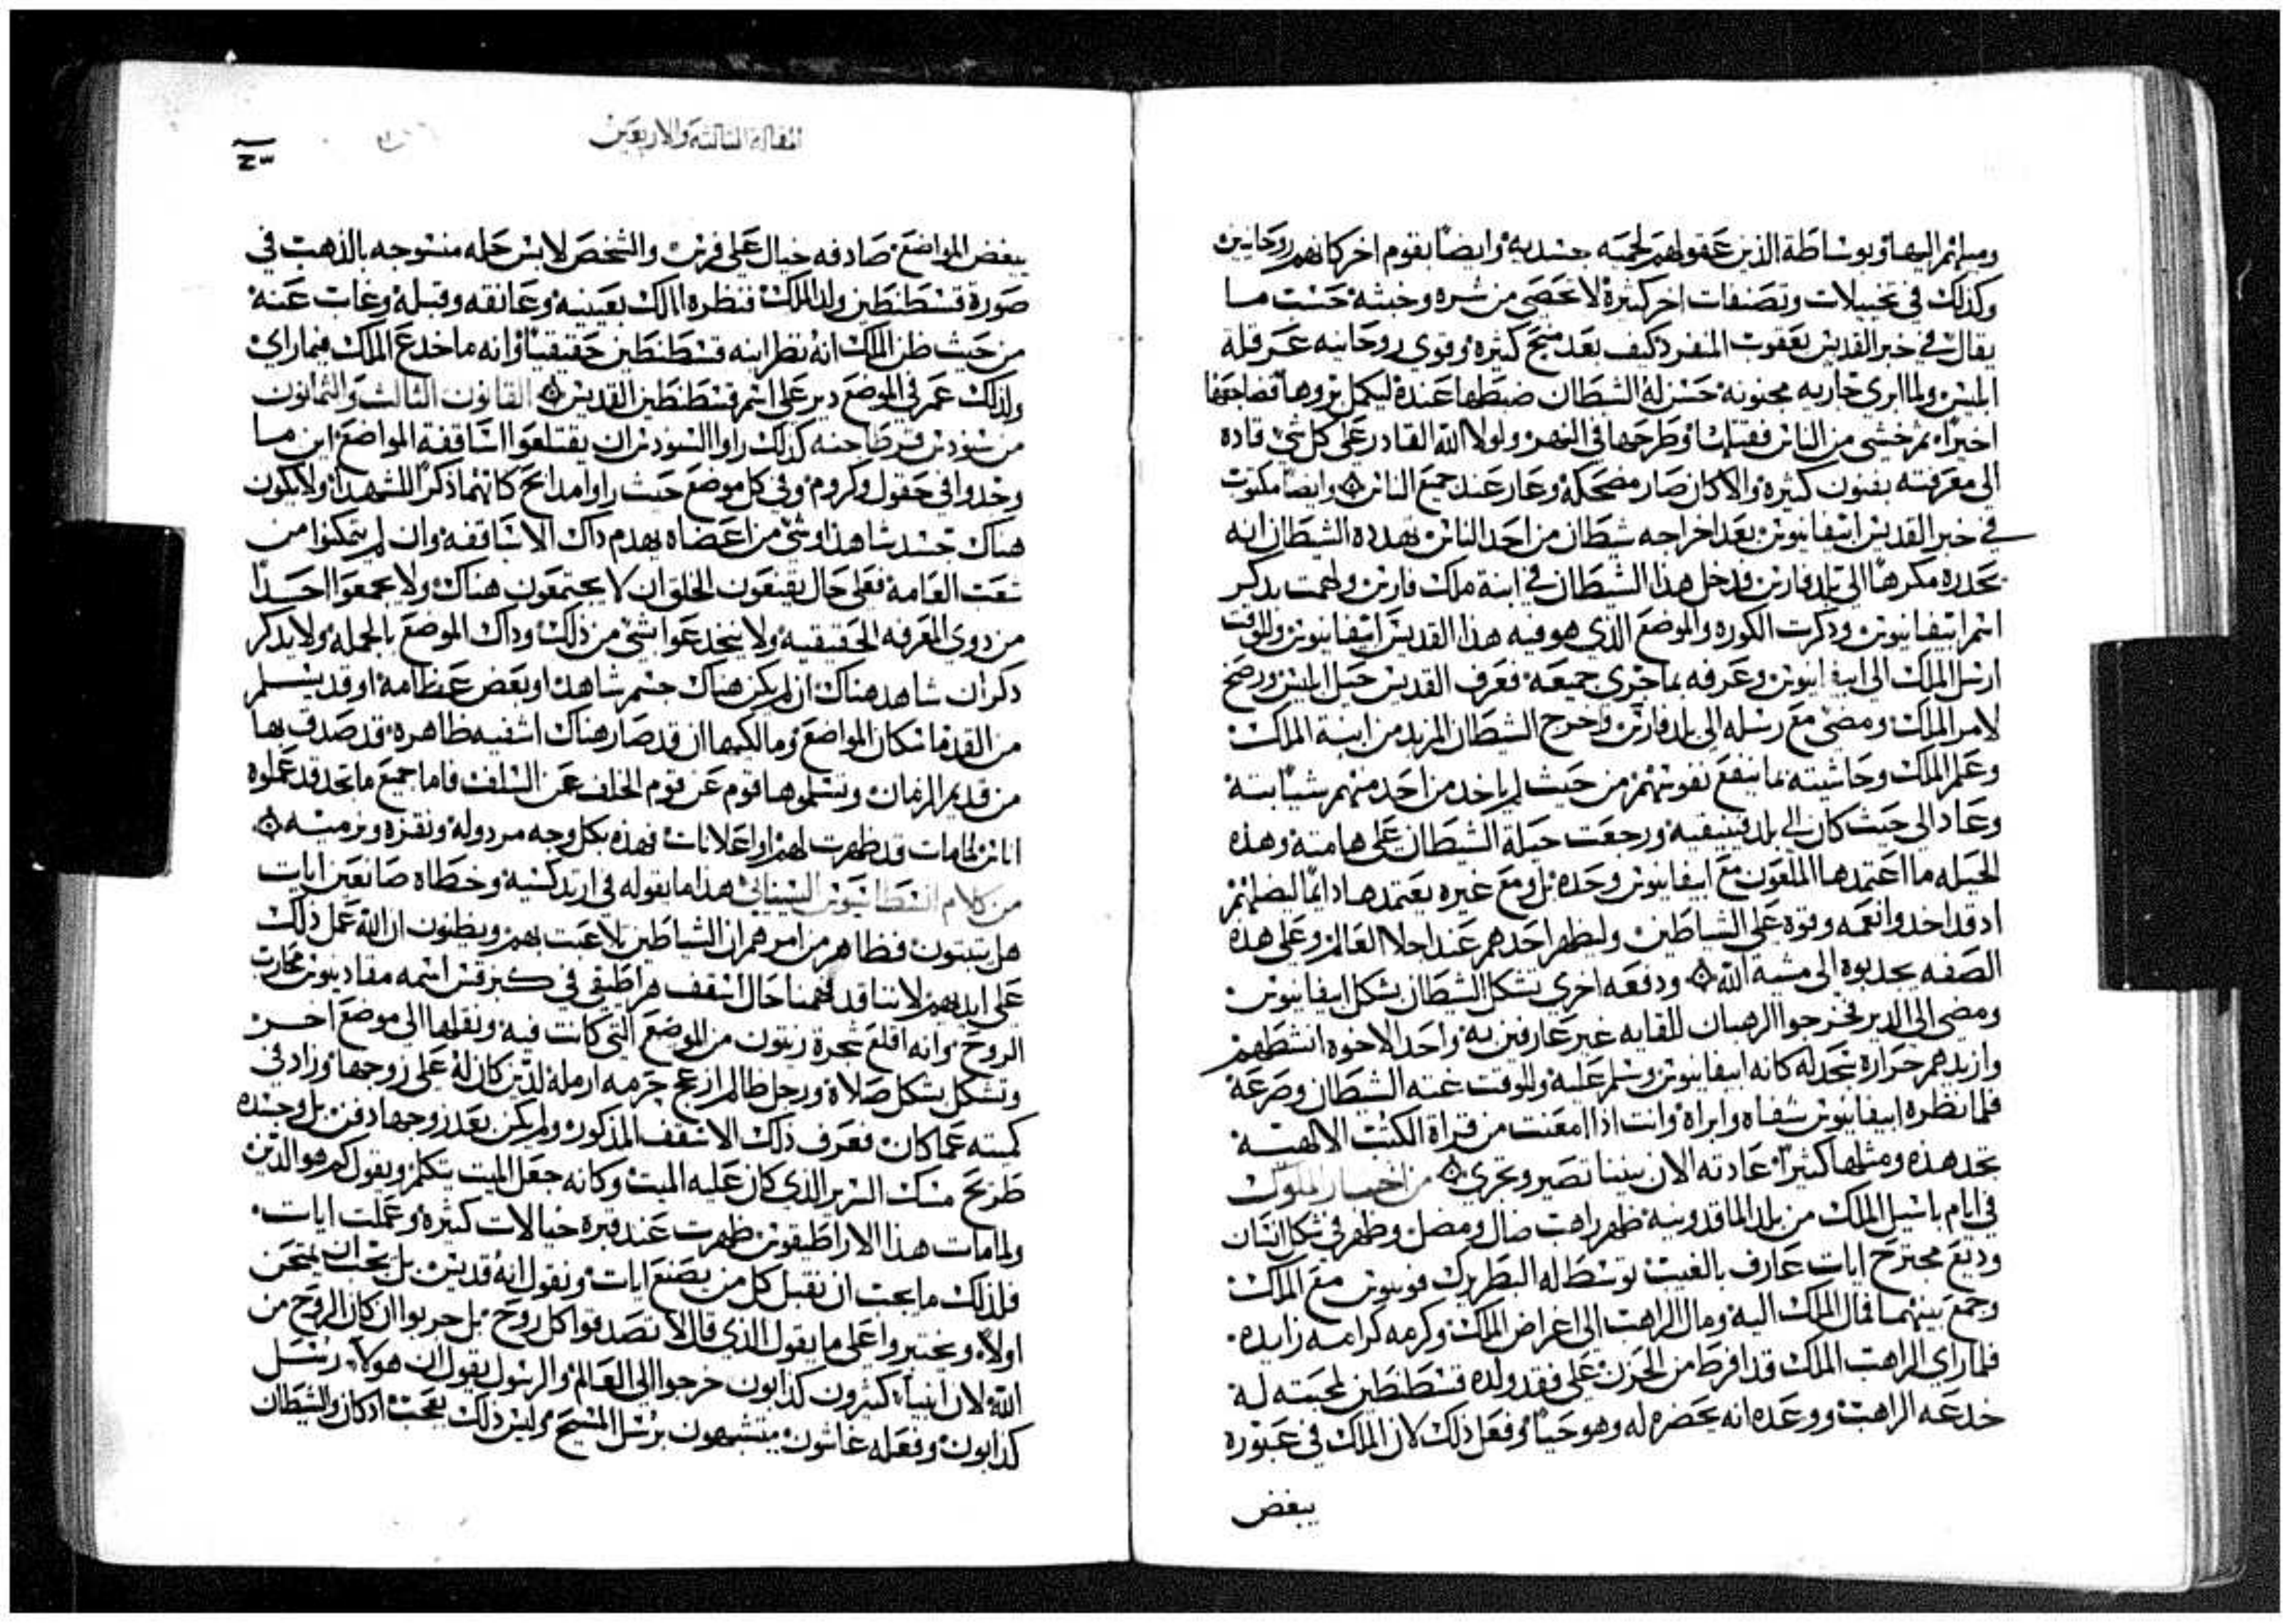 ومسلمهم اليها وبوساطة الذين عقولهم لحميه جسديه وايضًا بقوم اخر كانهم روحانيين
وكذلك في تخييلات وتصنفات اخر كثيرة لا تحصى من شره وخبثه حسب ما
يقال في خبر القديس يعقوب المنفرد كيف بعد منح كثيرة وقوى روحانيه عرقله
ابليس ولما ابرى جاريه مجنونه حسن له الشيطان ضبطها عنده ليكمل بروها فضاجعها
اخيرًا ثم خشي من الناس فقتلها وطرحها في النهر ولولا الله القادر على كل شي قاده
الى معرفته بفنون كثيرة والا كان صار مضحكه وعار عند جميع الناس وايضًا مكتوب
في خبر القديس ابيفانيوس بعد اخراجه شيطان من احد الناس تهدده الشيطان انه
يحدره مكرهًا الى بلد فارس فدخل هذا الشيطان في ابنة ملك فارس ولهجت بذكر
اسم ابيفانيوس وذكرت الكوره والموضع الذي هو فيه هذا القديس ابيفانيوس وللوقت
ارسل الملك الى ابيفانيوس وعرفه بما جرى جميعه فعرف القديس حيل ابليس ورضخ
لامر الملك ومضى مع رسله الى بلد فارس واخرج الشيطان المريد من ابنة الملك
وعلم الملك وحاشيته بما ينفع نفوسهم من حيث لم ياخد من احد منهم شيًا بتة
وعاد الى حيث كان الى بلد فينيقيه ورجعت حيلة الشيطان على هامته وهذه
الحيله ما اعتمدها الملعون مع ابيفانيوس وحده بل ومع غيره يعتمدها دايمًا ليضلهم
اد قد اخدوا نعمه وقوه على الشياطين وليظهر احدهم عند اجلا العالم وعلى هده
الصفه يجدبوه الى مشية الله ودفعه اخرى تشكل الشيطان بشكل ابيفانيوس
ومضى الى الدير فخرجوا الرهبان للقايه غير عارفين به واحد الاخوه انشطهم
وازيدهم حراره سجد له كانه ابيفانيوس وسلم عليه وللوقت غته الشيطان وصرعه
فلما نظره ابيفانيوس شفاه وابراه وانت اذا امعنت من قراة الكتب الالهية
تجد هذه ومثلها كثيرًا عادته الان بيننا تصير وتجري من اخبار الملوك
في ايام باسيل الملك من بلد الماقدونيه ظهر راهب ضال ومضل وظهر في شكل انسان
وديع مجترح ايات عارف بالغيب توسط له البطريرك فوتيوس مع الملك
وجمع بينهما فمال الملك اليه ومال الراهب الى اغراض الملك وكرمه كرامه زايده
فلما راى الراهب الملك قد افرط من الحزن على فقد ولده قسطنطين لمحبته له
خدعه الراهب ووعده انه يحضره له وهو حيًا وفعل ذلك لان الملك في عبوره
ببعض
المقالة الثالثة والاربعين
ببعض المواضع صادفه خيال على فرس والشخص لابس حله منسوجه بالذهب في
صورة قسطنطين ولد الملك فنظره الملك بعينيه وعانقه وقبله وغاب عنه
من حيث ظن الملك انه نظر ابنه قسطنطين حقيقيًا وانه ما خدع الملك فيما راى
ولذلك عمر في الموضع دير على اسم قسطنطين القديس القانون الثالث والثمانون
من سنودس قرطاجنه كذلك راوا السنودس ان يقتلعوا اساقفة المواضع اين ما
وجدوا في حقول وكروم وفي كل موضع حيث راوا مدابح كانهما ذكرًا للشهدا ولا يكون
هناك جسد شاهد او شي من اعضاه يهدم داك الاساقفه وان لم يتمكنوا من
شغب العامه فعلى حال يقنعون الخلق ان لا يجتمعون هناك ولا يجمعوا احدًا
من ذوي المعرفه الحقيقيه ولا ينخدعوا بشي من ذلك وداك الموضع بالجمله ولا يدكر
دكران شاهد هناك ان لم يكن هناك جسم شاهد او بعض عظامه او قد يتسلم
من القدما سكان المواضع ومالكيها ان قد صار هناك اشفيه ظاهره قد صدف بها
من قديم الزمان وتسلموها قوم عن قوم الخلف عن السلف فاما جميع ما تجد قد عملوه
اناس لمامات قد ظهرت لهم او اعلانات فهذه بكل وجه مردوله ونقزه ونرميه
من كلام انسطاسيوس السيناي هذا ما يقوله في اريدكسيه وخطاه صانعين ايات
هل يثبتون فظاهر من امرهم ان الشياطين تلاعبت بهم ويظنون ان الله عمل ذلك
على ايديهم لاننا قد فهمنا حال اسقف هراطيقي في كيزقس اسمه مقادنيوس محارب
الروح وانه اقلع شجرة زيتون من الموضع التي كانت فيه ونقلها الى موضع اخر
وتشكل بشكل صلاه ورجل ظالم ازعج حرمه ارمله لدين كان له على زوجها وزاد في
كميته عما كان فعرف ذلك الاسقف المذكور ولم يكن بعد زوجها دفن بل وجسده
طريح مسك السرير الذي كان عليه الميت وكانه جعل الميت يتكلم ويقول كم هو الدين
ولما مات هذا الاراطيقوس ظهرت عند قبره خيالات كثيره وعملت ايات
فلذلك ما يجب ان نقبل كل من يصنع ايات ونقول انه قديس بل يجب ان يمتحن
اولًا ويختبر واعلى ما يقول الذي قال لا تصدقوا كل روح بل جربوا ان كان الروح من
الله لان انبياء كثيرون كذابون خرجوا الى العالم والرسول يقول ان هولاء رسل
كذابون وفعله غاشون يتشبهون برسل المسيح وليس ذلك بعجب ادكان والشيطان